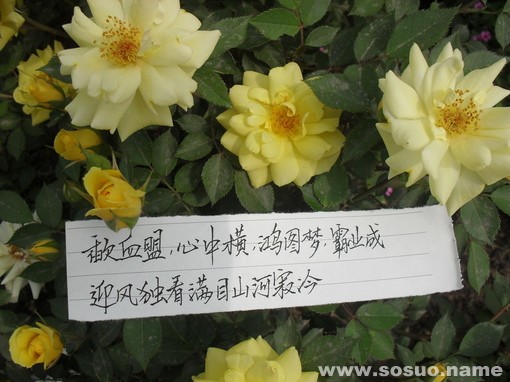 歃血盟,心中横,鸿图梦,霸业成
迎风独看满目山河寂冷
www.sosuo.name